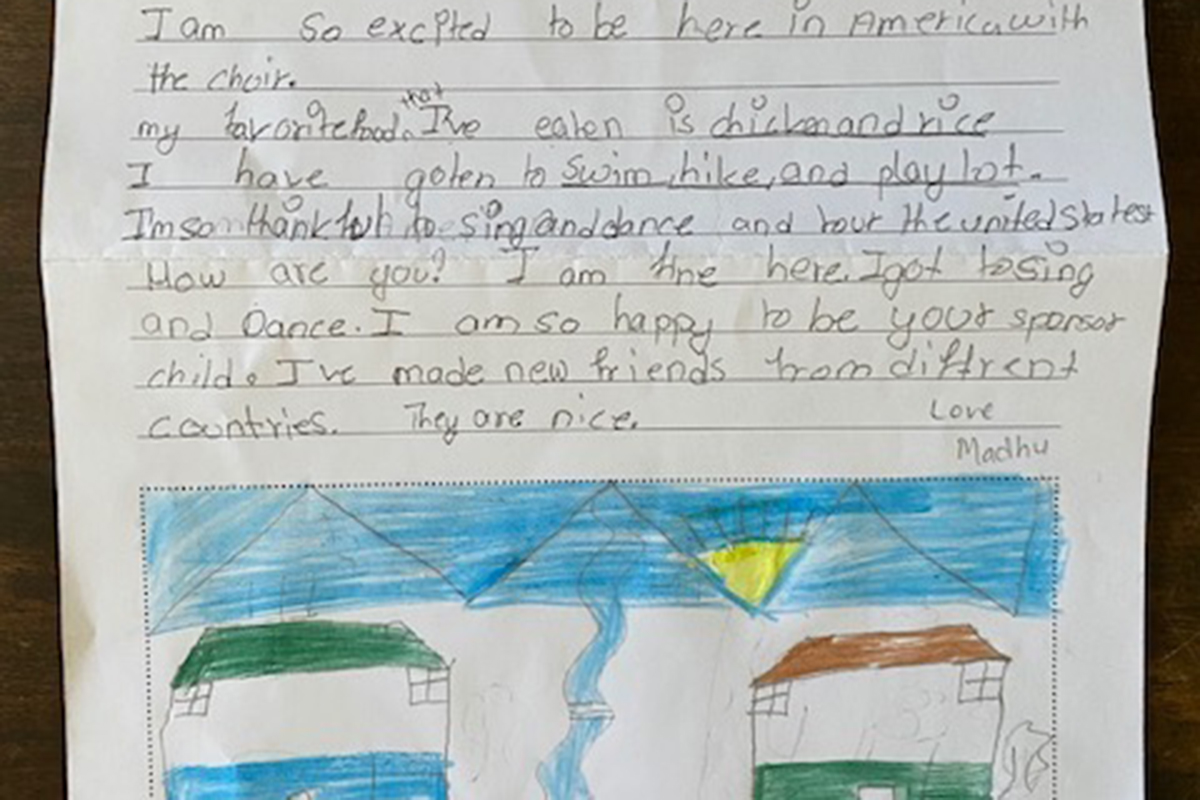 I am so excpted to be here in America with
the choir.
my favorite food. that I've eaten is chicken and rice
I have goten to swim, hike, and play lot.
I'm so thankful to sing and dance and tour the united states
How are you? I am fine here. I got to sing
and Dance. I am so happy to be your sponsor
child. I've made new friends from diffrent
countries. They are nice.
Love
Madhu